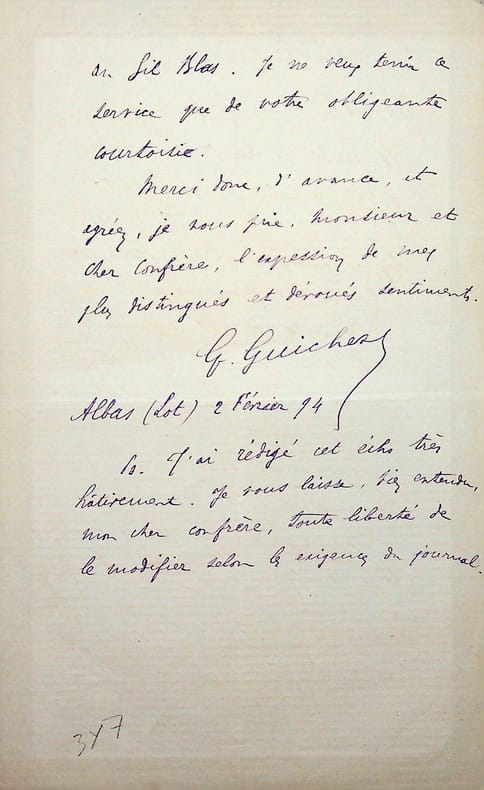 au Gil Blas. Je ne veux tenir ce
service que de votre obligeante
courtoisie.
Merci donc, d'avance, et
agréez, je vous prie, monsieur et
cher confrère, l'expression de mes
plus distingués et dévoués sentiments.
G. Guiches
Albas (Lot) 2 Février 94
Ps. J'ai rédigé cet écho très
hâtivement. Je vous laisse, bien entendu,
mon cher confrère, toute liberté de
le modifier selon les exigences du journal.
347